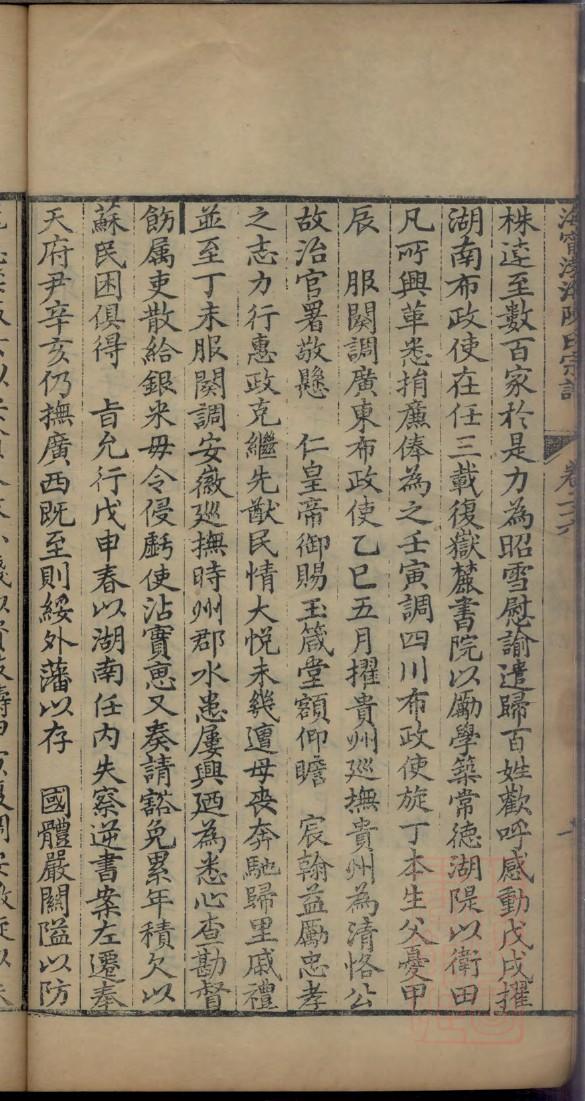 海寧渤海陳氏宗譜
卷二十六
株逹至數百家於是力為昭雪慰諭遣歸百姓歡呼感動戊戌擢
湖南布政使在任三載復嶽麓書院以勵學築常德湖隄以衛田
凡所興革悉捐廉俸為之壬寅調四川布政使旋丁本生父憂甲
辰　服闋調廣東布政使乙巳五月擢貴州巡撫貴州為清恪公
故治官署敬懸　仁皇帝御賜玉箴堂額仰瞻　宸翰益勵忠孝
之志力行惠政克繼先猷民情大悅未幾遭母喪奔馳歸里戚禮
並至丁未服闋調安徽巡撫時州郡水患屢興廼為悉心查勘督
飭属吏散給銀米毋令侵虧使沾實恵又奏請豁免累年積欠以
蘇民困俱得　旨允行戊申春以湖南任內失察逆書案左遷奉
天府尹辛亥仍撫廣西既至則綏外藩以存　國體嚴關隘以防